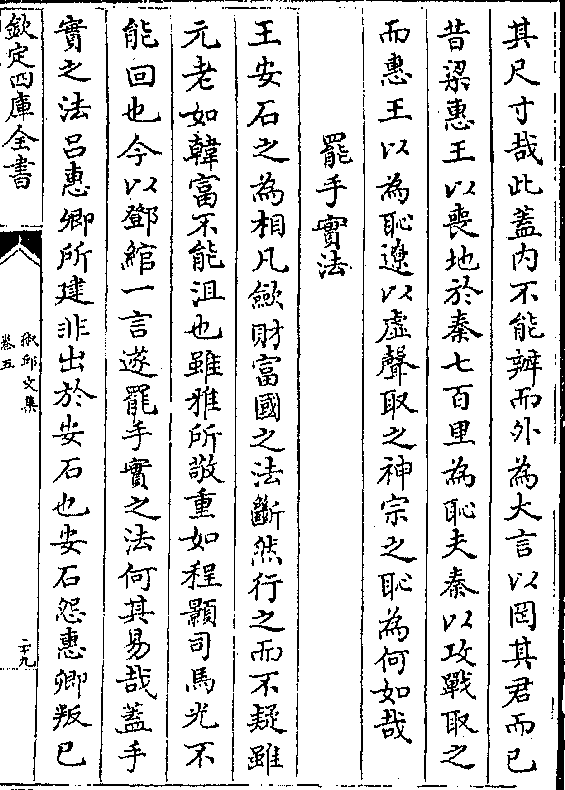 其尺寸哉此蓋内不能辨而外為大言以罔其君而已
昔梁惠王以喪地於秦七百里為恥夫秦以攻戰取之
而惠王以為恥遼以虛聲取之神宗之恥為何如哉
罷手實法
王安石之為相凡斂財富國之法斷然行之而不疑雖
元老如韓富不能沮也雖雅所敬重如程顥司馬光不
能回也今以鄧綰一言遂罷手實之法何其易哉蓋手
實之法吕惠卿所建非出於安石也安石怨惠卿叛已
欽定四庫全書
邱文集
卷五
二十九